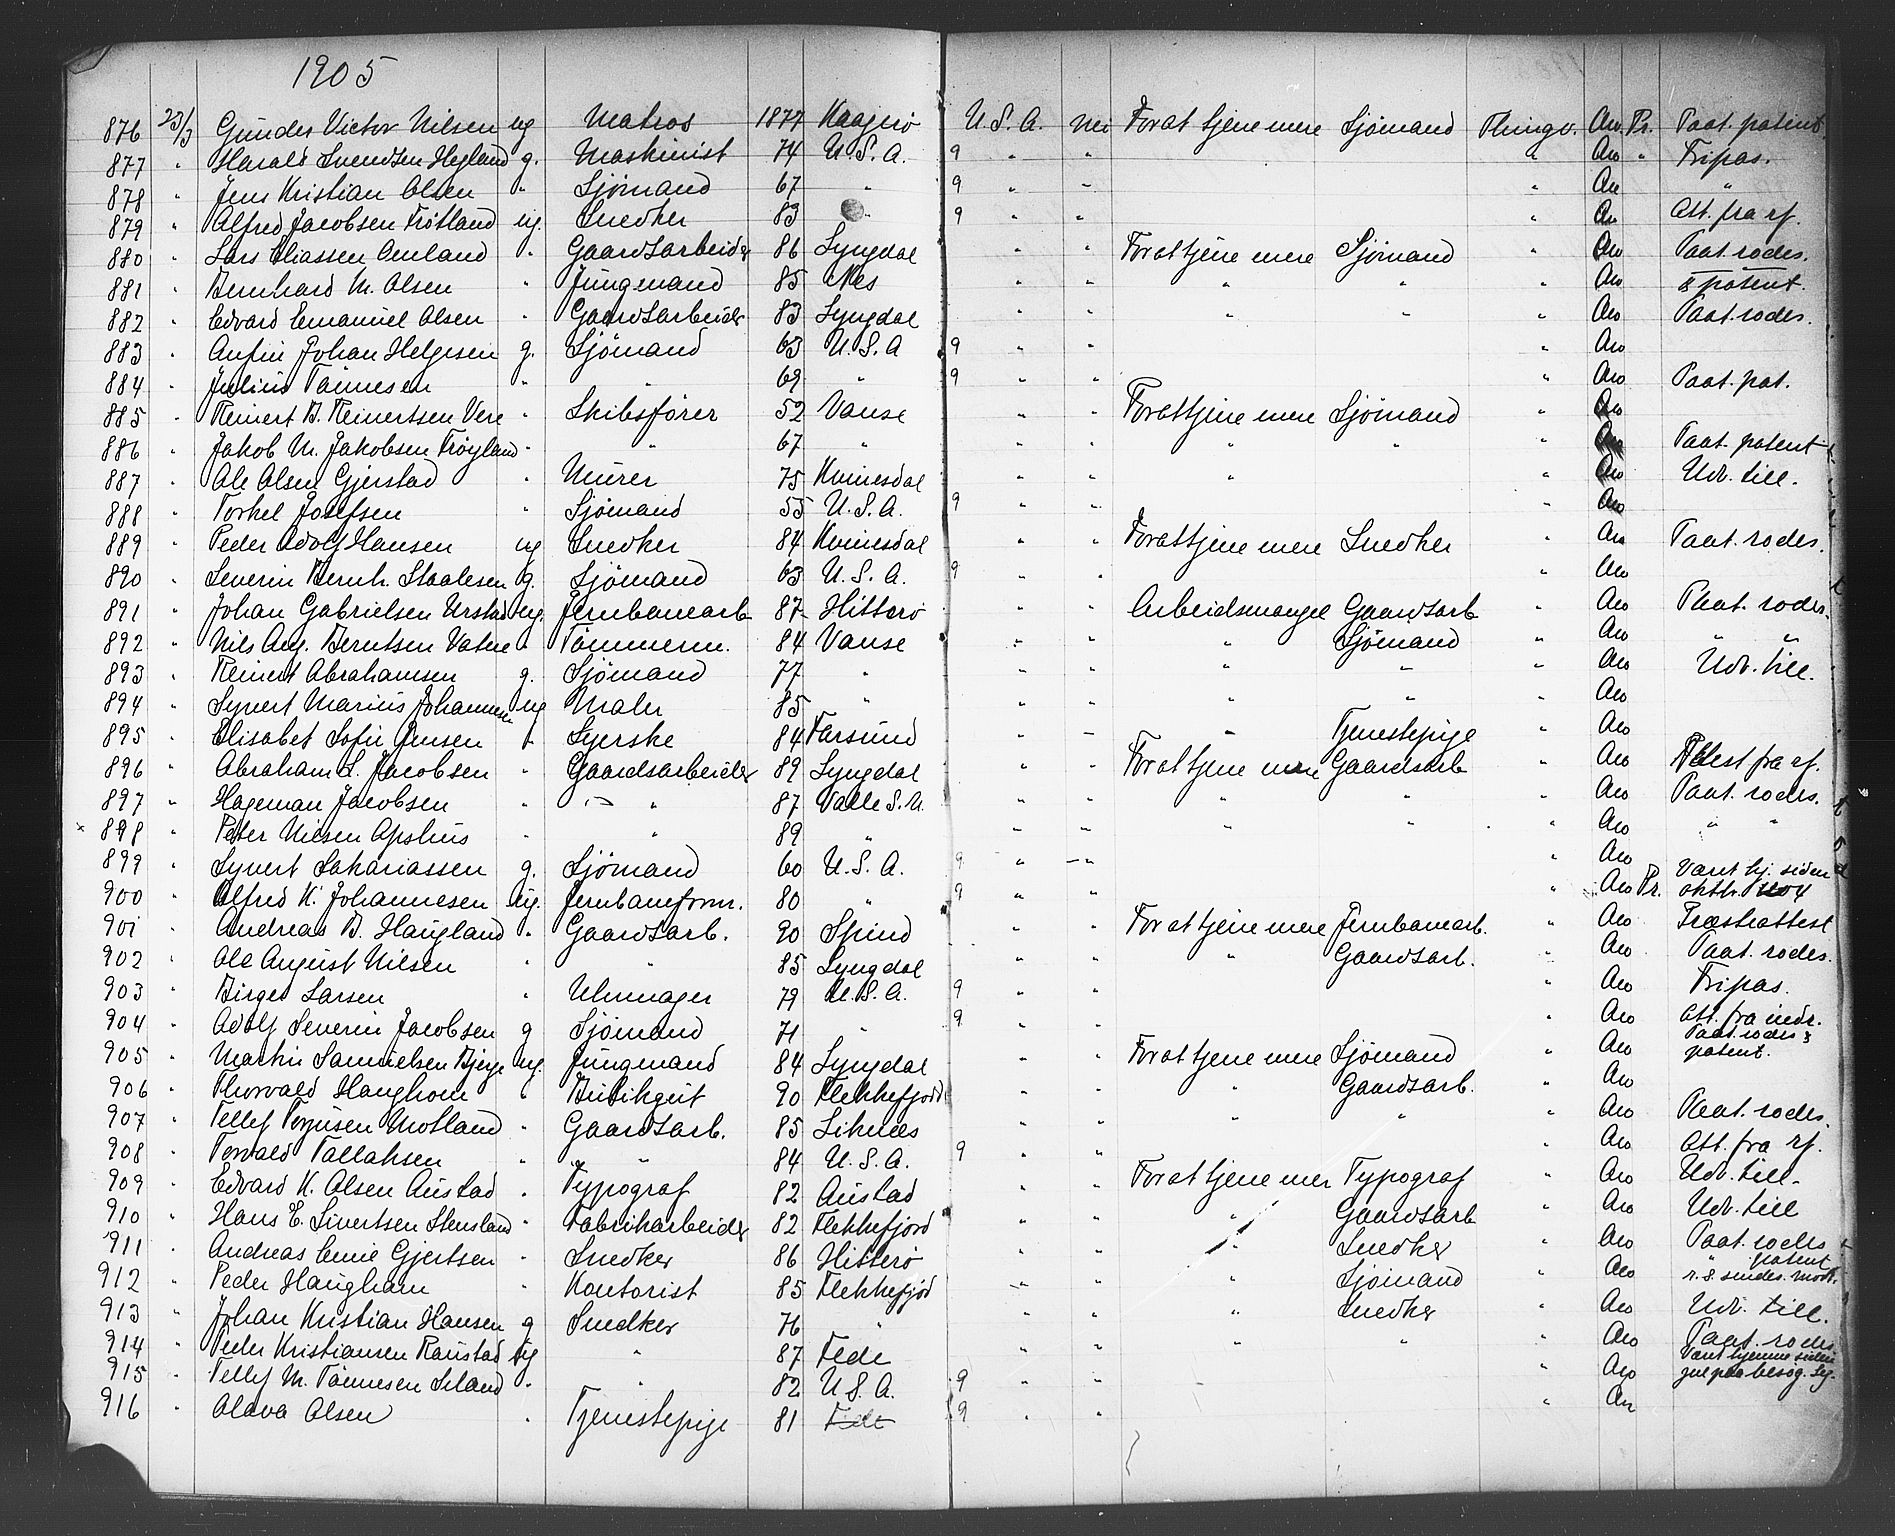 1905
876 23/3 Gunder Victor Nilsen ug Matros 1877 U.S.A. nei For at tjene mere Sjömand Thingv. Ao Pr. Paat. patent
877 " Harald Svendsen Hegland g. Maskinist 74 U.S.A. 9 " " " Ao " Fripas.
878 " Jens Kristian Olsen " Sjömand 67 " 9 " " " Ao "
879 " Alfred Jacobsen Frötland ug. Snedker 83 " 9 " " " Ao Att. fra rf.
880 " Lars Eliassen Omland " Gaardsarbeider 86 Lyngdal " " For at tjene mere Sjömand " Ao Paat. rodes.
881 " Bernhard M. Olsen " Jungmand 85 Nes " " " " " Ao " patent.
882 " Edvard Emanuel Olsen " Gaardsarbeider 83 Lyngdal " " " " " Ao Paat. rodes.
883 " Anfin Johan Helgesen g. Sjömand 63 U.S.A 9 " " " Ao
884 " Julius Tönnesen " " 69 " 9 " " " Ao Paat. pat.
885 " Reinert B. Reinertsen Vere " Skibsförer 52 Vanse " " For at tjene mere Sjömand " Ao
886 " Jakob M. Jakobsen Fröyland " " 67 " " " " " " Ao Paat. patent
887 " Ole Olsen Gjerstad " Murer 75 Kvinesdal " " " " Ao Udv. till.
888 " Torkel Josefsen " Sjömand 55 U.S.A. 9 " " " Ao
889 " Peder Adolf Hansen ug Snedker 84 Kvinesdal " " For at tjene mere Snedker " Ao Paat. rodes.
890 " Severin Bernh. Staalesen g. Sjömand 63 U.S.A. 9 " " " Ao
891 " Johan Gabrielsen Urstad ug. Jernbanearb 87 Hitterö " " Arbeidsmangel Gaardsarb " Ao Paat. rodes.
892 " Nils Aug. Berntsen Vatne " Tömmerm. 84 Vanse " " " Sjömand " Ao " "
893 " Reinert Abrahamsen g. Sjömand 77 " " " " " " Ao Udv. till.
894 " Syvert Marius Johannesen ug Maler 85 " " " " " " Ao
895 " Elisabet Sofie Jensen " Syerske 84 Farsund " " " Tjenestepige " Ao
896 " Abraham S. Jacobsen " Gaardsarbeider 89 Lyngdal " " For at tjene mere Gaardsarb " Ao Attest fra rf.
897 " Hageman Jacobsen " " 87 Valle S.U. " " " " " Ao Paat. rodes.
898 " Peter Nilsen " " 89 " " " " " " Ao " "
899 " Syvert Sakariassen g. Sjömand 60 U.S.A. 9 " " " Ao Været hj. siden
900 " Alfred K. Johannesen ug. Jernbaneform. 80 " 9 " " " Ao Pr. oktbr. 1904
901 " Andreas B. Haugland " Gaardsarb. 90 Spind " " For at tjene mere Jernbanearb. " Ao Præsteattest
902 " Ole August Nilsen " " 85 Lyngdal " " " Gaardsarb. " Ao Paat. rodes.
903 " Birger Larsen " Uhrmager 79 U.S.A. 9 " " " Ao Fripas.
904 " Adolf Severin Jacobsen g Sjömand 71 " 9 " " " Ao Att. fra indr.
905 " Martin Samuelsen Bjerge ug. Jungmand 84 Lyngdal " " For at tjene mere Sjömand " Ao Paat. rodes & patent.
906 " Thorvald Haughom " Butikgut 90 Flekkefjord " " " Gaardsarb. " Ao
907 " Tellef Torjusen Motland " Gaardsarb. 85 Liknes " " " " " Ao Paat. rodes.
908 " Torvald Tallaksen " " 84 U.S.A. 9 " " " Ao Att. fra rf.
909 " Edvard K. Olsen Austad " Typograf 82 Austad " " For at tjene mer Typograf " Ao Udv. till.
910 " Hans E. Sivertsen Stensland " Fabrikarbeider 82 Flekkefjord " " " Gaardsarb " Ao Udv. till
911 " Andreas Emil Gjertsen " Snedker 86 Hitterö " " " Snedker " Ao Paat. rodes
912 " Peder Haugham " Kontorist 85 Flekkefjord " " " Sjömand " Ao " patent
913 " Johan Kristian Hansen g Snedker 76 " " " " Snedker " Ao Udv. till.
914 " Peder Kristiansen Raustad ug " 87 Fede " " " " " Ao Paat. rodes
915 " Tellef M. Tönnesen Seland " " 82 U.S.A. 9 " " " Ao Været hjemme siden jul paa besög.
916 " Olava Olsen " Tjenestepige 81 Fede 9 " " " Ao